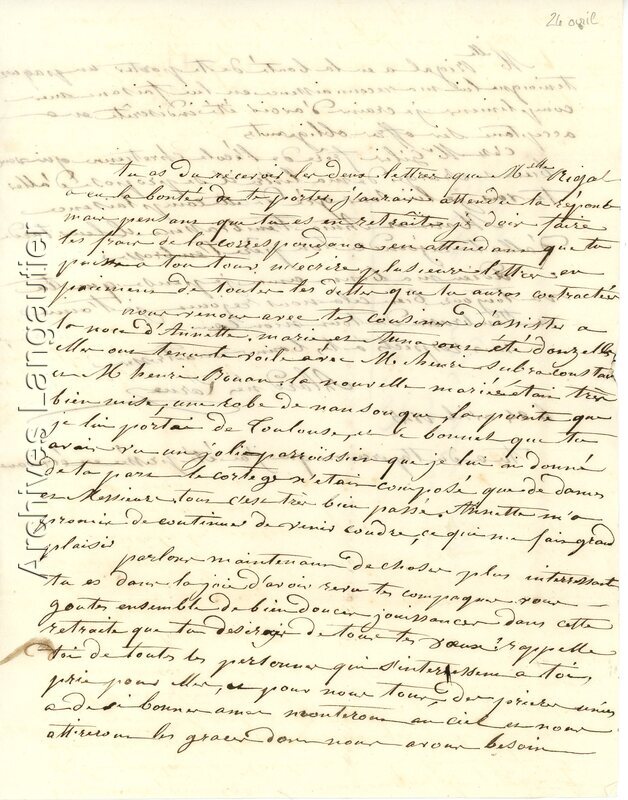 26 avril
tu as du recevoir les deux lettres que M elle Rigal
a eu la bonté de te porter, j'aurais attendu la réponse
mais pensant que tu es en retraite je doir faire
les frais de la correspondance en attendant que tu
puisse a ton tour, m'écrire plusieurs lettre en
paiement de toutes les dettes que tu auras contractées
nous venons avec tes cousines d'assister a
la noce d'Annette, maria et Anna ont été donzelles
elles ont tenu le voile avec M. henri Subra constan
et M henri Rouan, la nouvelle mariée étant très
bien mise, une robe de nansouque la pointe que
je lui portai de Toulouse, et le bonnet que tu
avais vu un joli paroissien que je lui ai donné
de ta part le cortege n'etait composé que de dames
en Messieurs tous c'est très bien passé. Annette m'a
promis de continuer de venir coudre, ce que me fais grand
plaisir
parlons maintenant de choses plus interressant
tu es dans la joie d'avoir revu tes compagnes vous
goutes ensemble de bien douces jouissances dans cette
retraite que tu desirais de tous tes vœux! rappelle
toi de toutes les personnes qui s'interessent a toi,
prie pour elles, et pour nous tous, des prieres unies
a de si bonnes ames monteront au ciel et nous
attireront les graces dont nous avons besoin
Archives Langautier